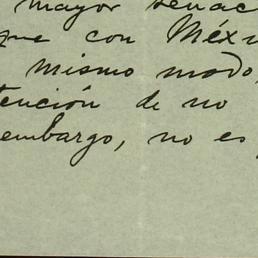 mayor tenac
que con Méxi
mismo modo,
tención de no
embargo, no es